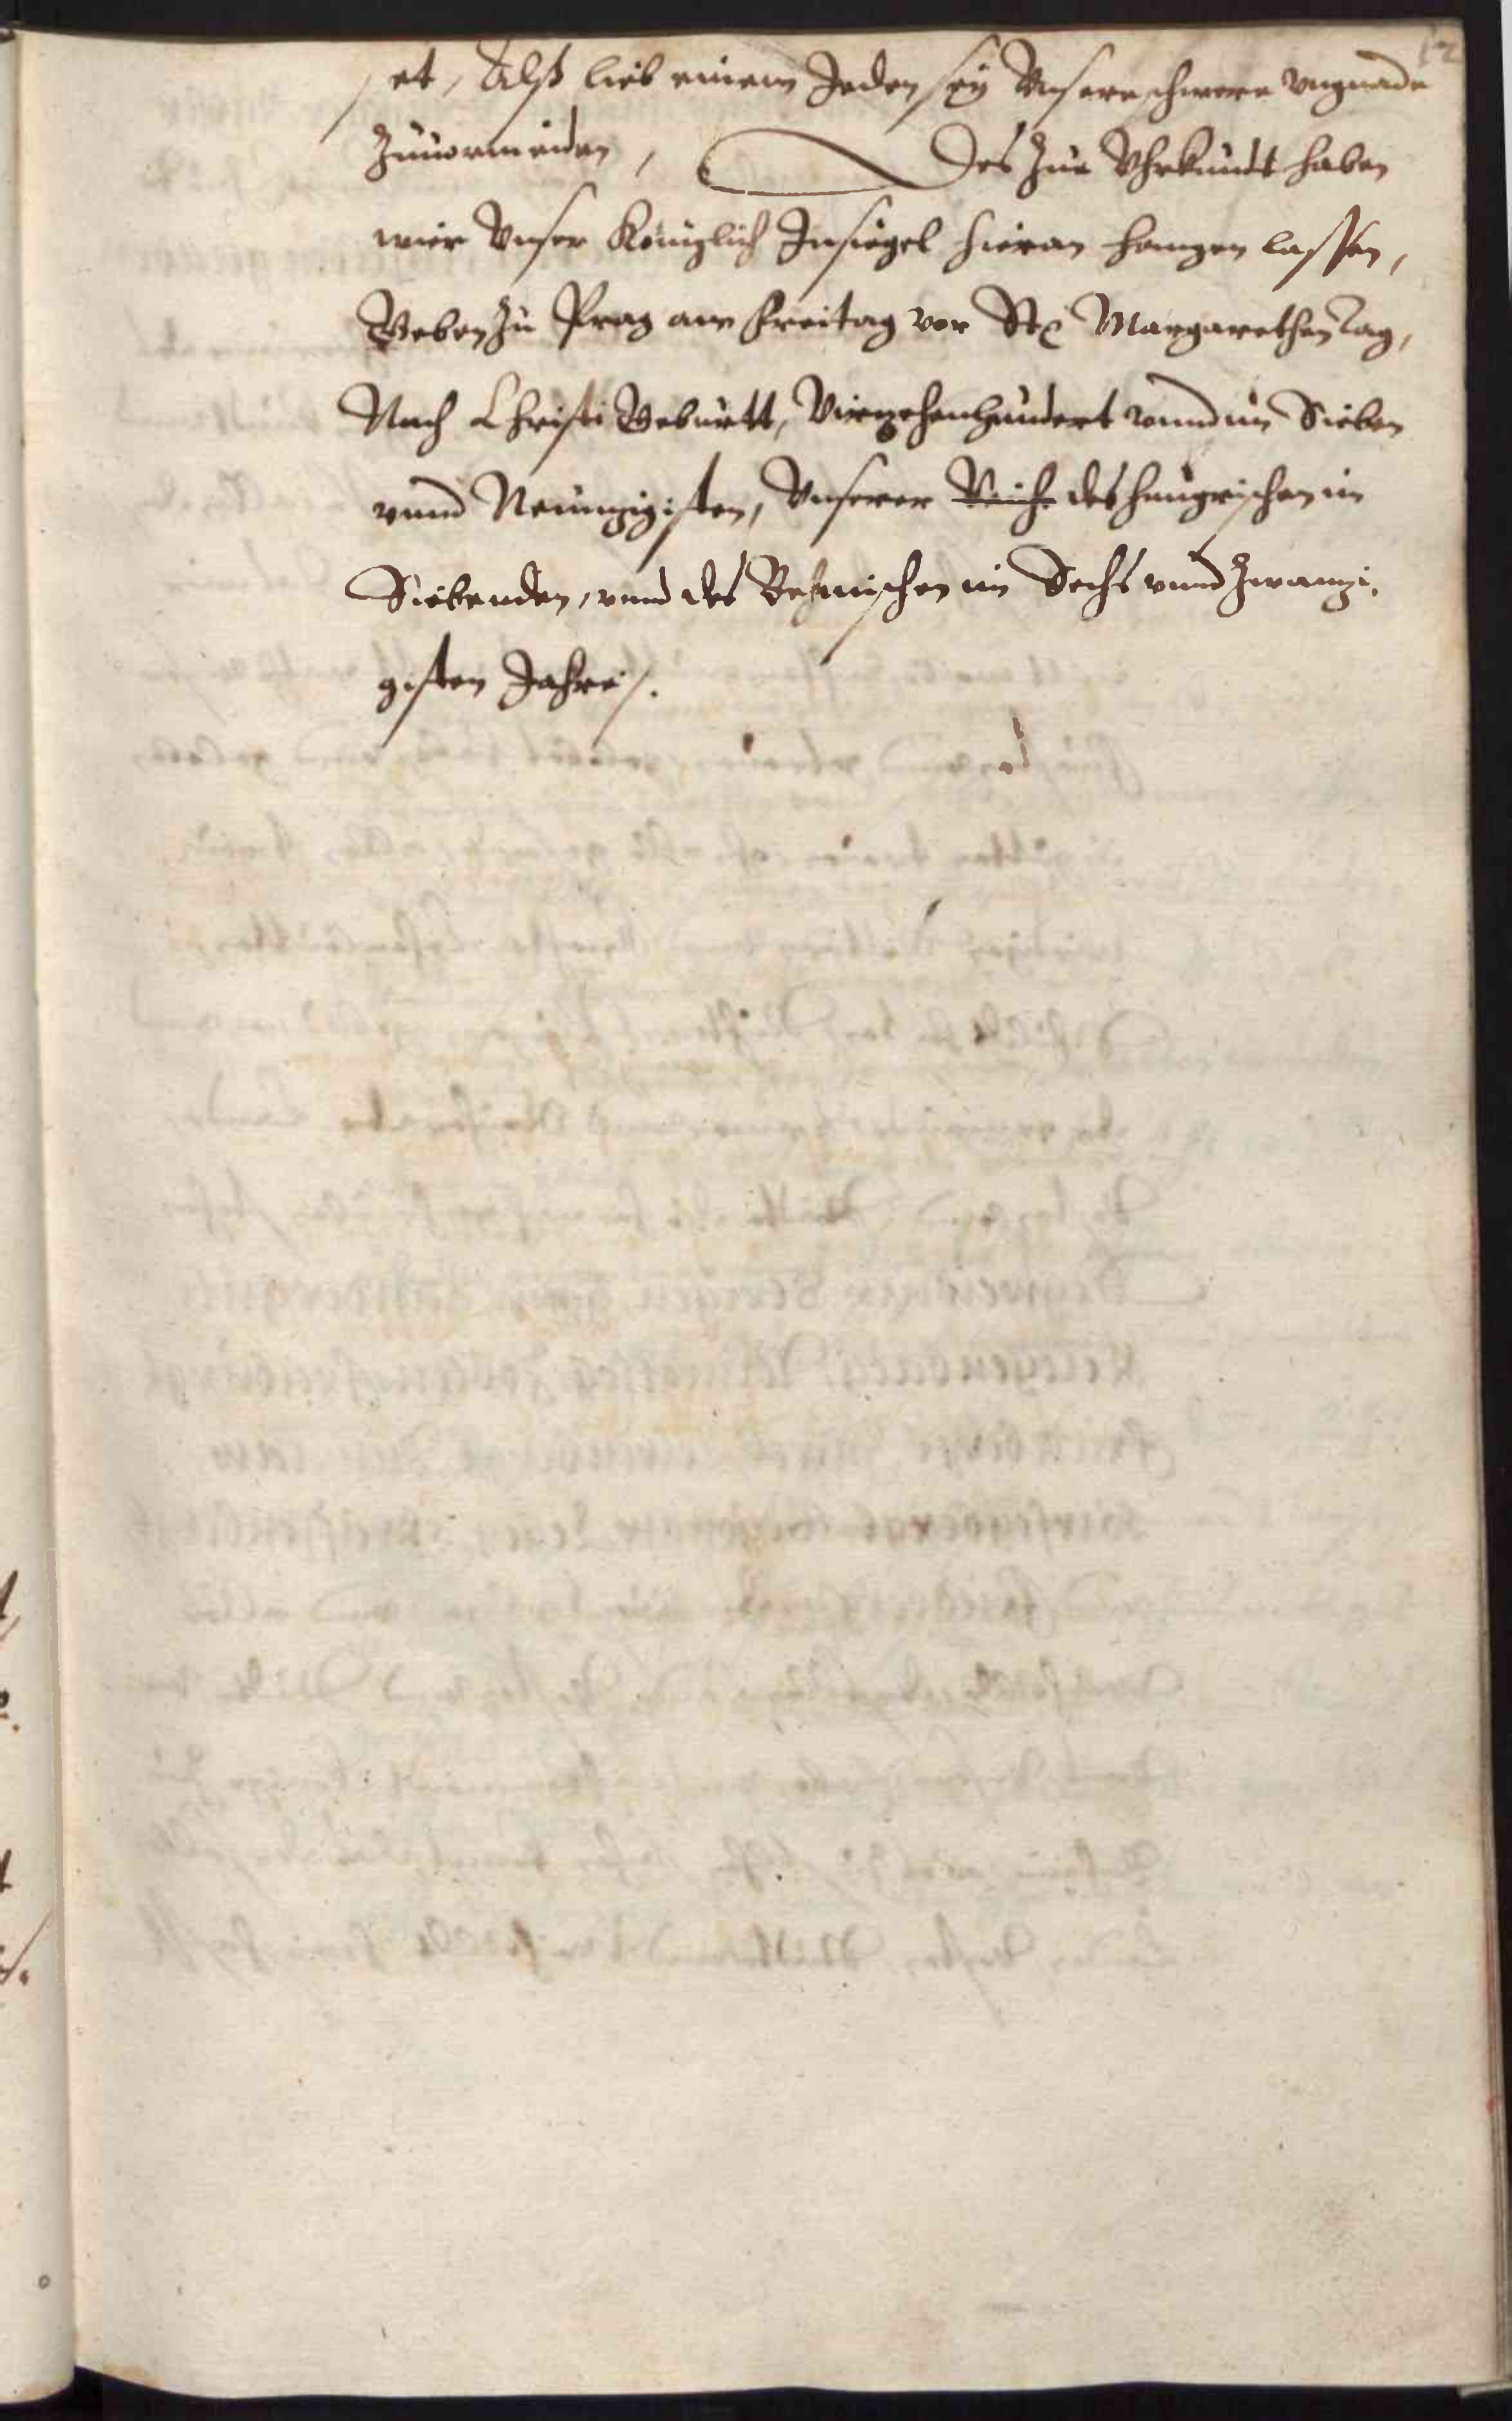 12
et, Alß lieb einem Jeden sey Unsere schwere ungnade
Zuuormeiden, Des Zue Uhrkundt haben
wier Unser Königlich Insiegel hieran hangen lassen,
Geben Zu Prag am Freitag vor St: Margarethen Tag,
Nach Christi Geburtt, Vierzehenhundert vnnd im Sieben
vnnd Neunzigisten, Unserer Reich des Hungrischen im
Siebenden, vnnd des Behmischen im Sechs vnnd Zwanzi,
gisten Jahre.